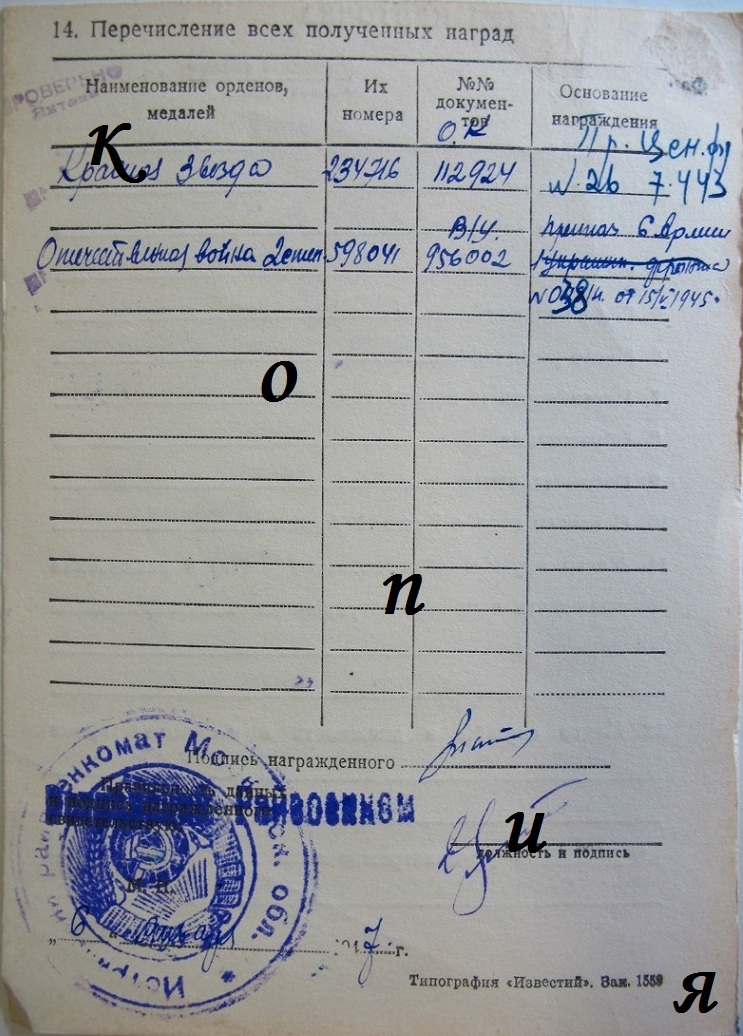 14. Перечисление всех полученных наград
ПРОВЕРЕНО
Наименование орденов, медалей
Их номера
№№ документов
Основание награждения
О.К
Пр. Цен. фр
Красная Звезда 234716 112924 № 26 7.443
В/У. приказ 6 Армии
Отечественная война 2 степ. 598041 956002 Украинск. фронта
38/н. от 15/V 1945.
Подпись награжденного
Правильность данных
и подпись награжденного
свидетельствую.
Райвоенком
должность и подпись
М. П.
райвоенкомат Моск. обл.
„6“ января 1947 г.
Типография «Известий». Зак. 1559
к
о
п
и
я